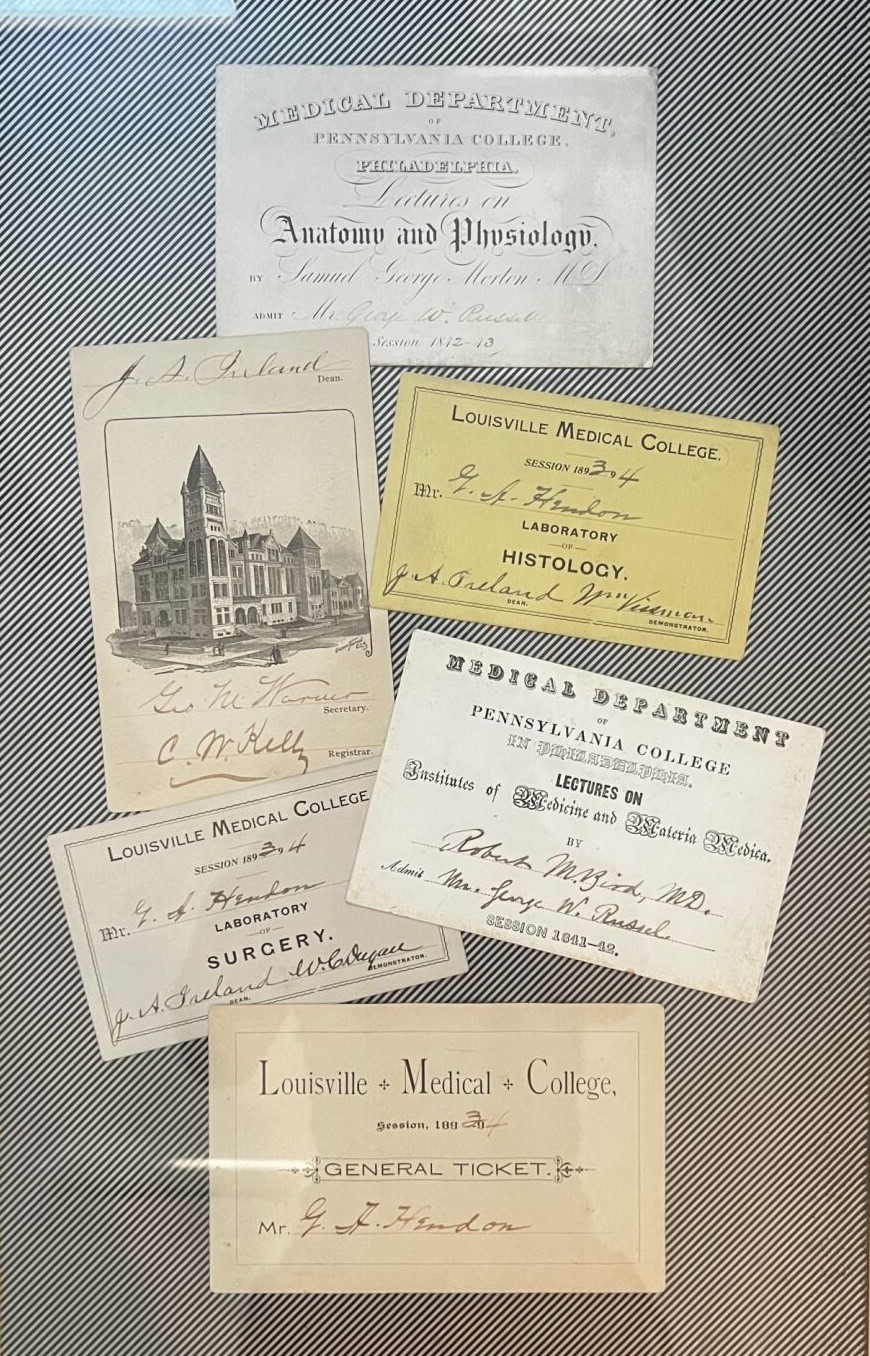 MEDICAL DEPARTMENT,
OF
PENNSYLVANIA COLLEGE,
PHILADELPHIA.
Lectures on
Anatomy and Physiology,
BY Samuel George Morton M D
ADMIT Mr. George W. Russell
Session 1842-43
J. A. Ireland
Dean.
Geo M Warner
Secretary.
C. W. Kelly
Registrar.
LOUISVILLE MEDICAL COLLEGE.
SESSION 1893-94
Mr. G. A. Hendon
LABORATORY
—OF—
HISTOLOGY.
J. A. Ireland Wm
DEAN. DEMONSTRATOR.
MEDICAL DEPARTMENT
OF
PENNSYLVANIA COLLEGE
IN PHILADELPHIA.
LECTURES ON
Institutes of Medicine and Materia Medica.
BY
Robert M. Bird, MD.
Admit Mr. George W. Russel
SESSION 1841-42.
LOUISVILLE MEDICAL COLLEGE
SESSION 1893 94
Mr. G. A. Hendon
LABORATORY
—OF—
SURGERY.
J. A. Ireland W. C. Dugan
DEAN. DEMONSTRATOR.
Louisville + Medical + College,
Session, 1893 94
GENERAL TICKET.
Mr. G. A. Hendon